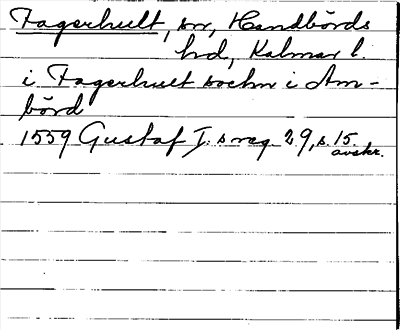 Fagerhult, sn, Handbörds
hd, Kalmar l.
i Fagerhult sochn i Am-
börd
1559 Gustaf I:s reg 29, s. 15.
avskr.